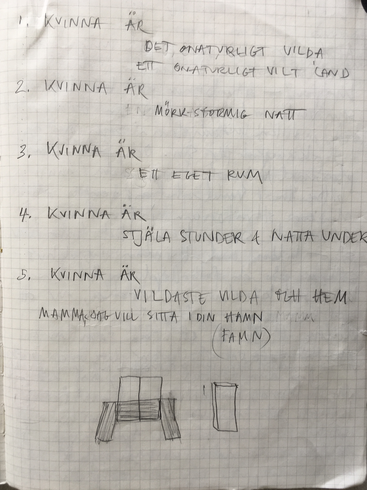 1. KVINNA ÄR
DET ONATURLIGT VILDA
ETT ONATURLIGT VILT LAND
2. KVINNA ÄR
MÖRK STORMIG NATT
3. KVINNA ÄR
ETT EGET RUM
4. KVINNA ÄR
STJÄLA STUNDER & NATTA UNDER
5. KVINNA ÄR
VILDASTE VILDA OCH HEM
MAMMA, JAG VILL SITTA I DIN HAMN
(FAMN)